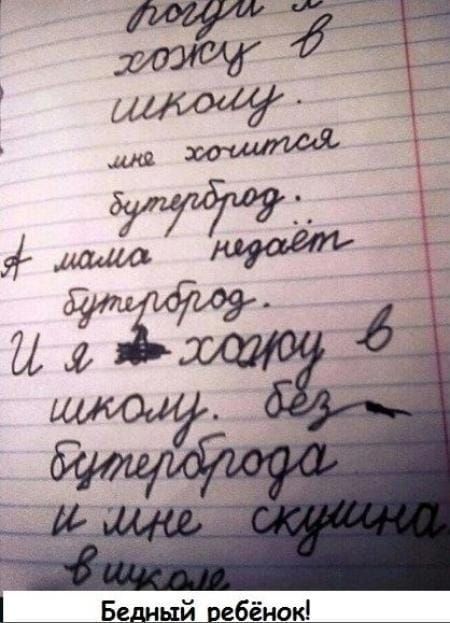 Когда я
хожу в
школу.
мне хочится
бутерброд.
А мама недаёт
бутерброд.
И я хожу в
школу. без
бутерброда
и мне скушна
в школе
Бедный ребёнок!